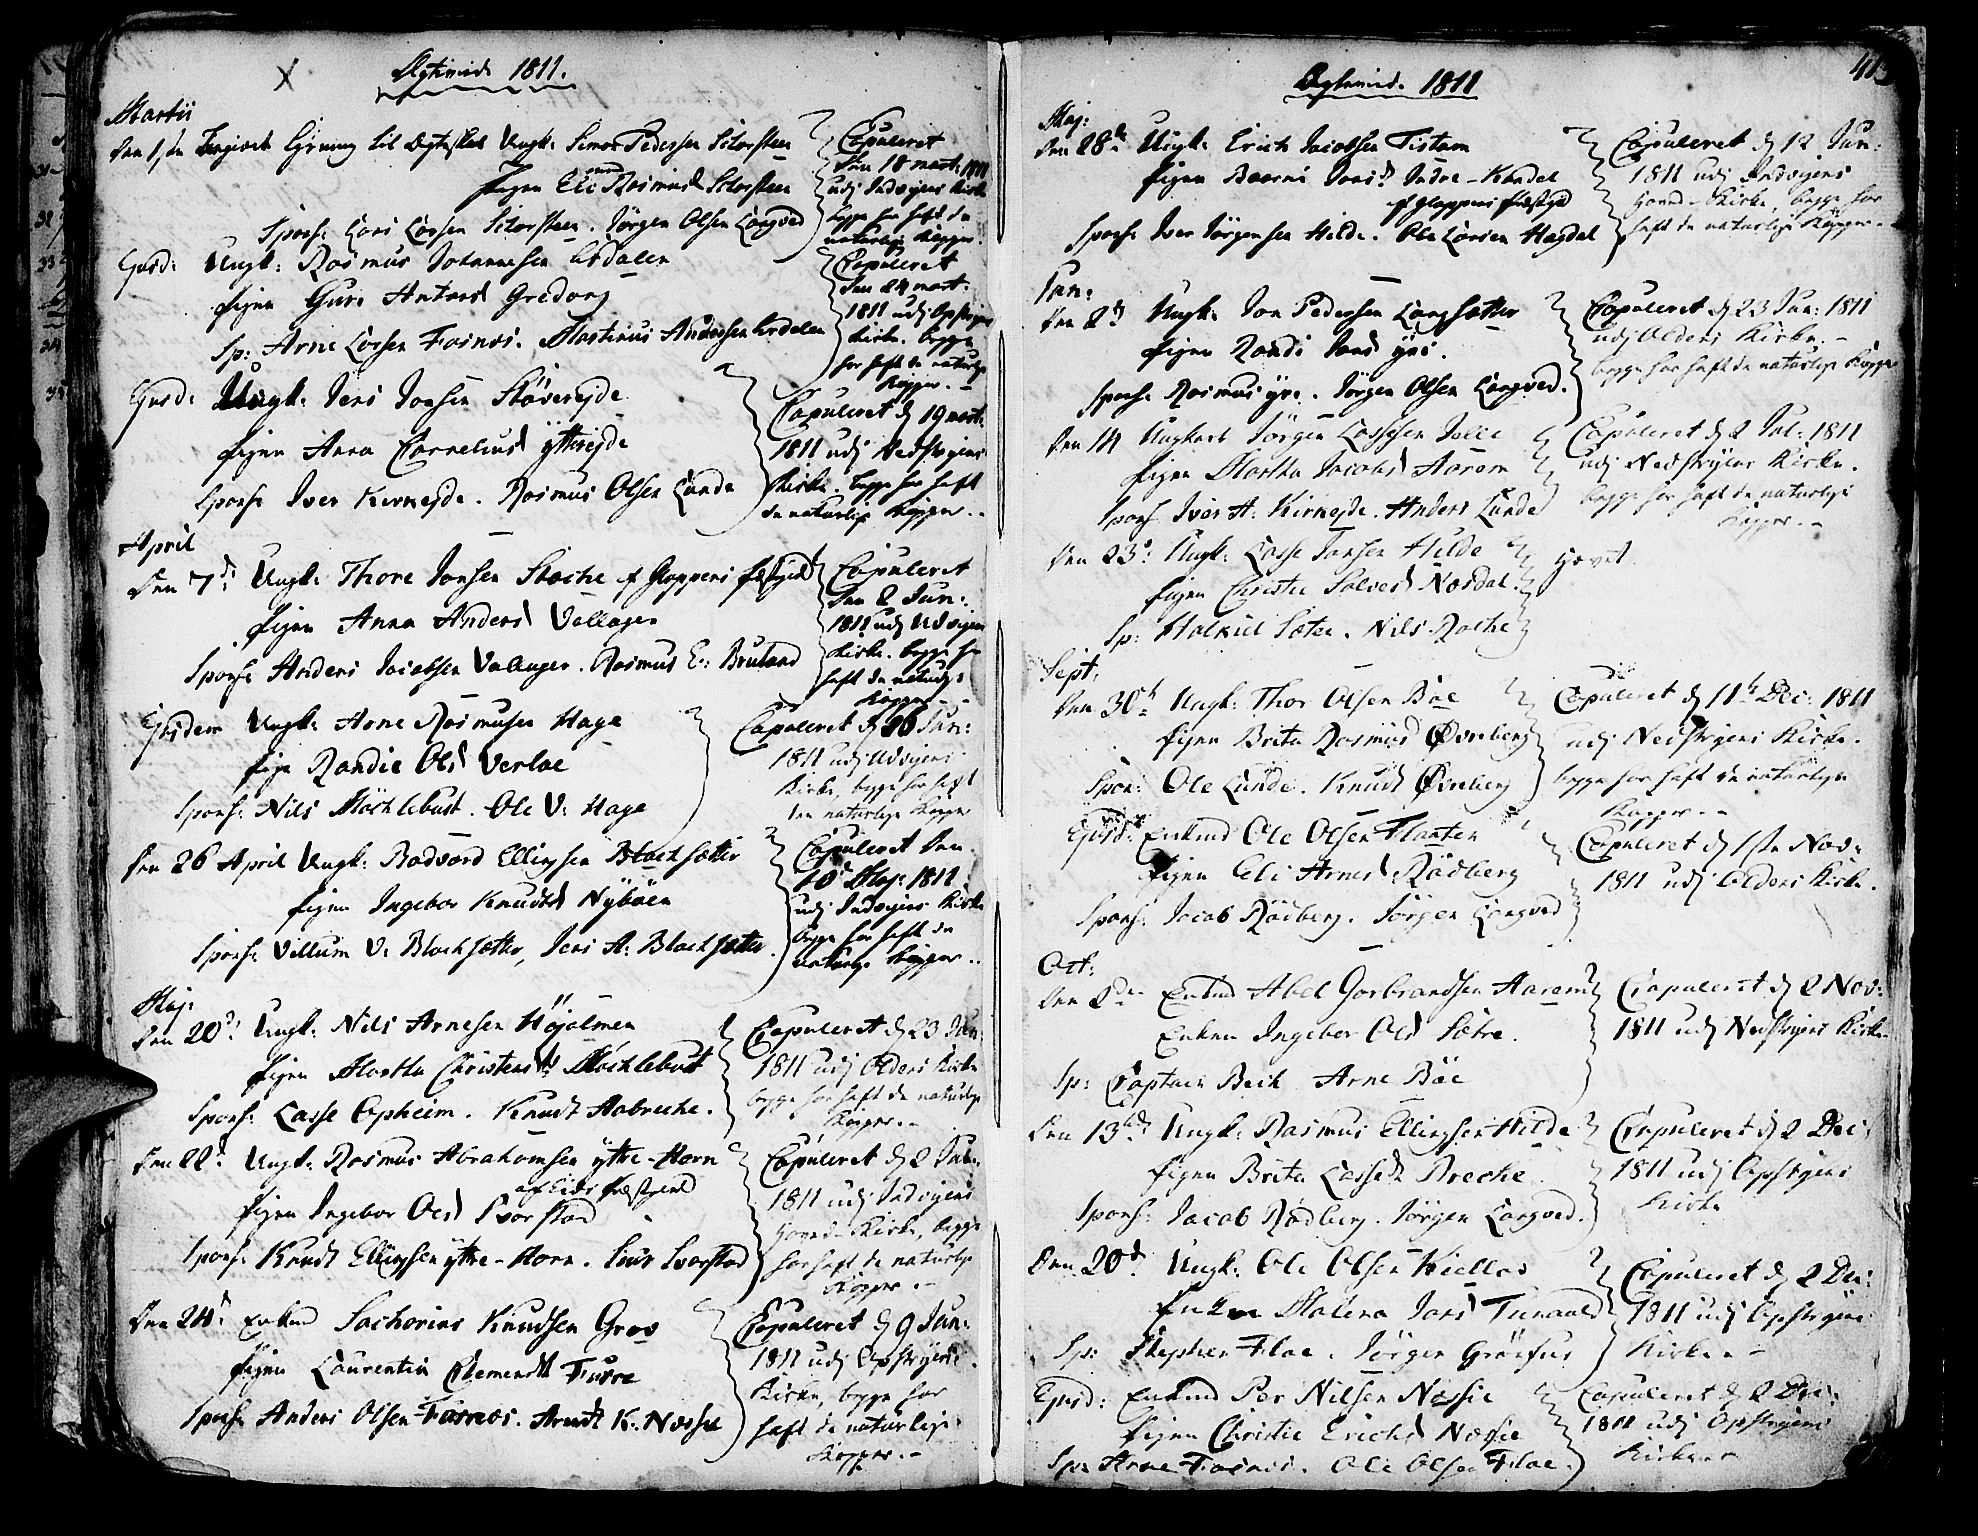 Ægtevied 1811.
Martii
Den 1ste Begiert Lysning til Ægteskab Ungk: Simon Pedersen Storsteen
Pigen Eli Rasmusd Storsteen
Spons: Lars Larsen Storsteen. Jørgen Olsen Langved
Copuleret
den 18 mart: 1811
udj Indvigens Kirke
begge har haft de
naturlige Kopper.
Ejusd: Ungk: Rasmus Johannesen Erdalen
Pigen Guri Antonsd Gredung
Sp: Arne Larsen Fosnæs. Martinus Andersen Erdalen
Copuleret
den 24 mart:
1811 udj Opstryns
Kirke. begge
har haft de naturlige
Kopper. -
Ejusd: Ungk: Jens Jonsen Støvereyde
Pigen Anna Cornelius ytterejde
Spons: Iver Kirkeyde. Rasmus Olsen Lunde
Copuleret d 19 mart:
1811 udj Nedstryens
Kirke. begge har haft
de naturlige Kopper. -
April
Den 7d: Ungk: Thore Jonsen Støche af Gloppens Præstegield
Pigen Anna Andersd Vallager
Spons: Anders Jacobsen Vallager. Rasmus E: Bruland
Copuleret
den 2 Jun:
1811 udj Udvigens
Kirke. begge har
haft de naturlige
Kopper. -
Ejusdem Ungk: Arne Rasmusen Hage
Pige Randie Olsd Verlae
Spons: Nils Møchlebust. Ole V: Hage
Copuleret d 16 Jun:
1811 udj Udvigens
Kirke, begge har haft
den naturlige Kopper
Den 26 April Ungk: Badvard Ellingsen Blachsætter
Pigen Ingebor Knudsd Nybøen
Spons: Villum V: Blochsætter, Jens A: Blochsætter
Copuleret den
10d Maj: 1811
udj Indvigens Kirke
begge har haft de
naturlige Kopper. -
Maj:
Den 20d: Ungk: Nils Arnesen Høyolmen
Pigen Martha Christensd Møchlebust
Spons: Lasse Opheim. Knudt Aabreche.
Copuleret d 23 Jun:
1811 udj Oldens Kirke
begge har haft de naturlige
Kopper. -
Den 22d: Ungk: Rasmus Abrahamsen ytre-Horn
af Eids Præstegield
Pigen Ingebor Olsd Svorstad
Spons: Knudt Ellingsen ytre-Horn. Siur Svorstad
Copuleret d 2 Jul:
1811 udj Indvigens
Hoved-Kirke, begge
har haft de naturlige
Kopper. -
Den 24d: Enkmd Sacharias Knudsen Grov
Pigen Laurentia Clemendsd Furre
Spons: Anders Olsen Fosnæs. Arndt K: Næssie
Copuleret d 9 Jun:
1811 udj Opstryens
Kirke, begge har
haft de naturlige
Kopper. -
Ægtevied. 1811
Maj:
Den 28d: Ungk: Erich Jacobsen Tistam
Pigen Baarni Jonsd: Indre-Kandal
af Gloppens Præstegd
Spons: Iver Jørgensen Hilde. Ole Larsen Hagdal
Copuleret d 12 Jun:
1811 udj Indvigens
Hoved-Kirke, begge har
haft de naturlige Kopper. -
Jun:
Den 2d Ungk: Jon Pedersen Langsætter
Pigen Randi Jonsd yri.
Spons: Rasmus yri. Jørgen Olsen Langved.
Copuleret d 23 Jun: 1811
udj Oldens Kirke. -
begge har haft de naturlige Kopper
Den 14 Ungkarl Jørgen Lassesen Jelle
Pigen Martha Jacobsd Aarem
Spons: Iver A: Kirkeyde. Anders Lunde
Copuleret d 2 Jul: 1811
udj Nedstryns Kirke.
begge har haft de naturlige
Kopper. -
Den 23d: Ungk: Lasse Jansen Hilde
Pigen Christie Salvesd Nosdal.
Sp: Halkiel Sæter. Nils Rache
Hævet
Sept:
Den 30th Ungk: Thor Olsen Bøe
Pigen Brita Rasmusd Øvreberg
Spon: Ole Lunde. Knudt Øvreberg
Copuleret d 11te Dec: 1811
udj Nedstryens Kirke.
begge har haft de naturlige
Kopper. -
Ejusd: Enkmd Ole Olsen Flaaten
Pigen Eli Arnesd Rødberg
Spons: Jacob Rødberg. Jørgen Langved
Copuleret d 1ste Nov:
1811 udj Oldens Kirke.
Oct:
Den 2den Enkmd Abel Gorbrandsen Aarem
Enken Ingebor Olsd Sætre.
Sp: Captain Beck Arne Bøe
Copuleret d 2 Nov:
1811 udj Nedstryens Kirke
Den 13d: Ungk: Rasmus Ellingsen Hilde
Pigen Brita Lassesd Breche
Spons: Jacob Rødberg. Jørgen Langved.
Copuleret d 2 Dec:
1811 udj Opstryens
Kirke
Den 20d: Ungk: Ole Olsen Kiellas
Enken Malena Jonsd Tunaald
Sp: Stephen Flae. Jørgen Grønfur
Copuleret d 2 Dec:
1811 udj Opstryens
Kirke. -
Ejusd: Enkmd Per Nilsen Næssie
Pigen Christie Erichsd Næssie
Sp: Arne Fosnæs. Ole Olsen Flae.
Copuleret d 2 Dec:
1811 udj Opstryens
Kirke. -